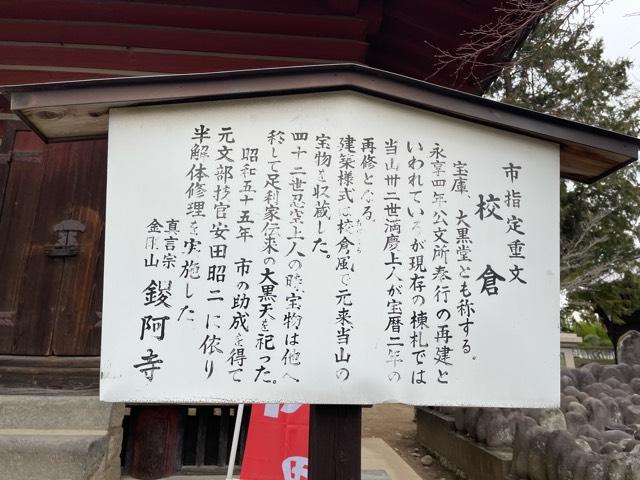 市指定重文
校倉
宝庫、大黒堂とも称する。
永享四年公文所奉行の再建と
いわれているが現存の棟札では
当山卅二世満慶上人が宝暦二年の
再修となる。
建築様式は校倉風で元来当山の
宝物を収蔵した。
四十二世忍空上人の時宝物は他へ
移して足利家伝来の大黒天を祀った。
昭和五十五年 市の助成を得て
元文部技官安田昭二に依り
半解体修理を実施した
真言宗
金剛山
鑁阿寺